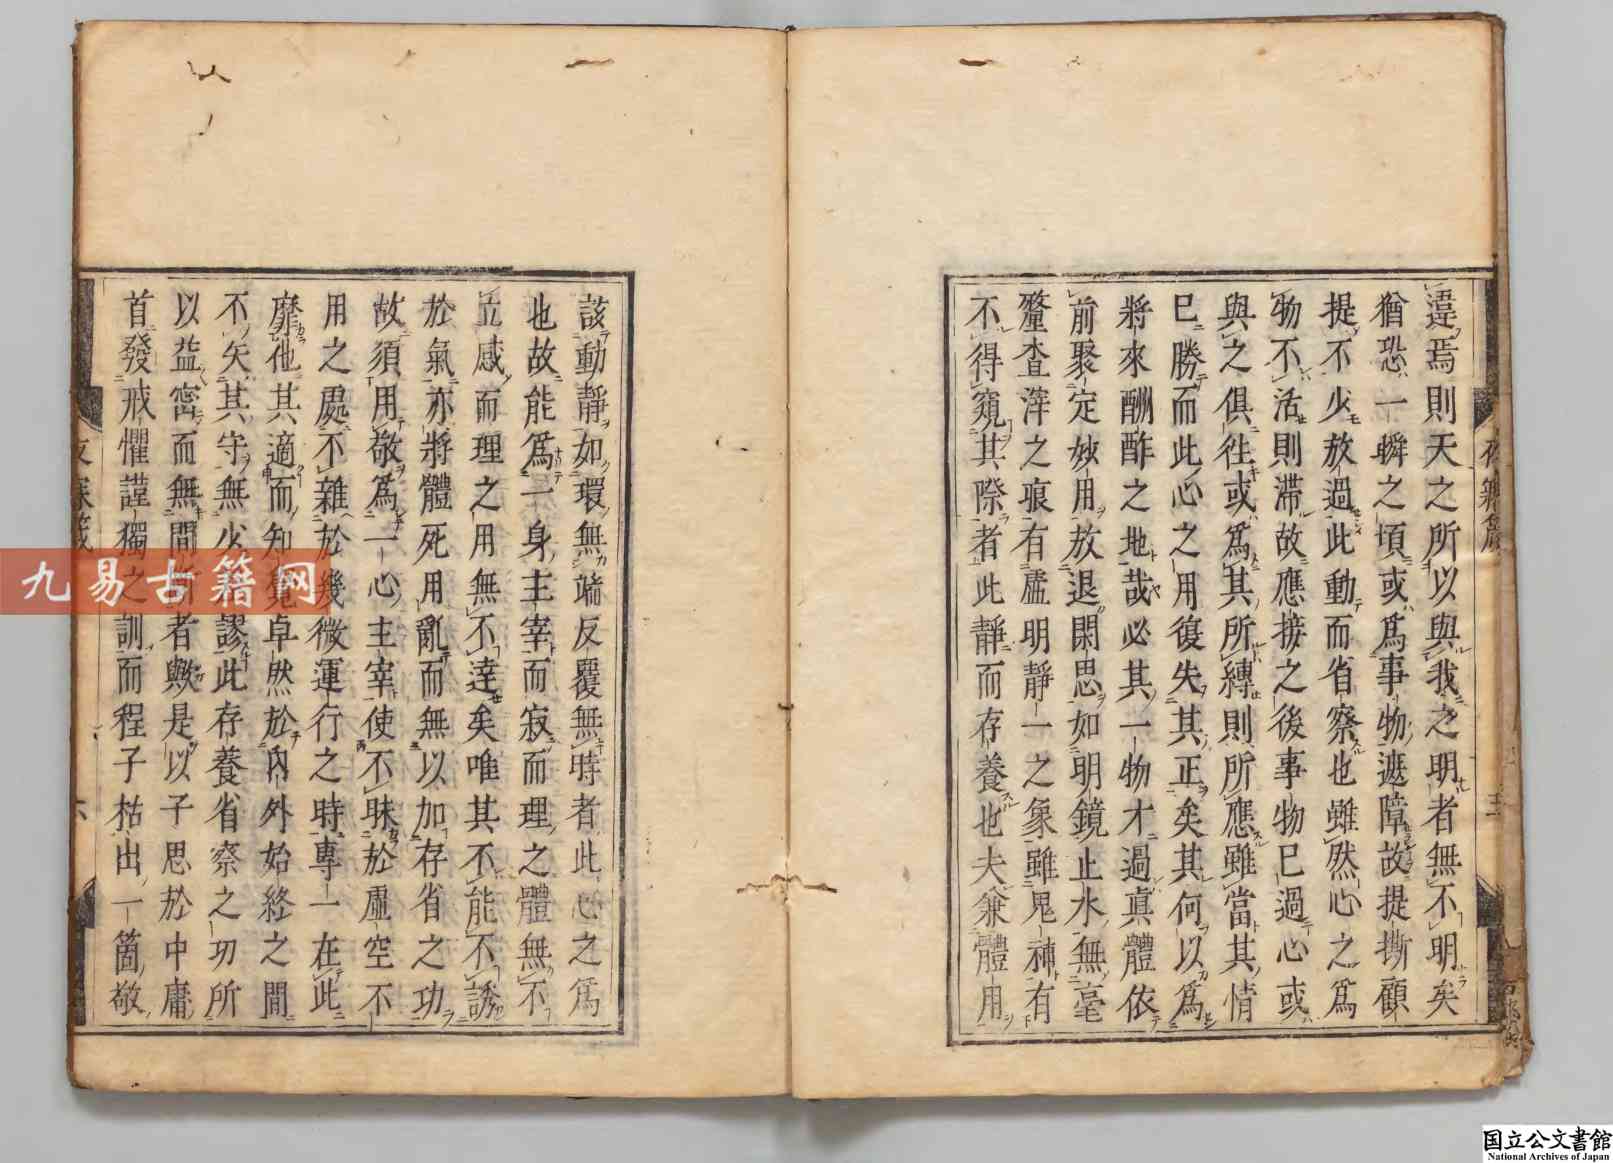 違焉則天之所以與我之明者無不明矣
猶恐一瞬之頃或為事物遮障故提撕顧
提不少放過此動而省察也雖然心之為
物不活則滞故應接之後事物已過心或
與之俱徃或為其所縛則所應雖當其情
已勝而此心之用復失其正矣其何以為
將來酬酢之地哉必其一物才過眞體依
前聚定妙用放退閑思如明鏡止水無毫
釐查滓之痕有虛明靜一之象雖鬼神有
不得窺其際者此靜而存養也夫兼體用
該動靜如環無端反覆無時者此心之為
也故能為一身主宰而寂而理之體無不
立感而理之用無不達矣唯其不能不誘
於氣亦將體死用亂而無以加存省之功
故須用敬為一心主宰使不昧於虛空不
用之處不雜於幾微運行之時專一在此
靡他其適而知覺卓然於內外始終之間
不失其守無少謬此存養省察之功所
以益密而無間斷者歟是以子思於中庸
首發戒懼謹獨之訓而程子枯出一箇敬
六
九易古籍网
国立公文書館
National Archives of Japan